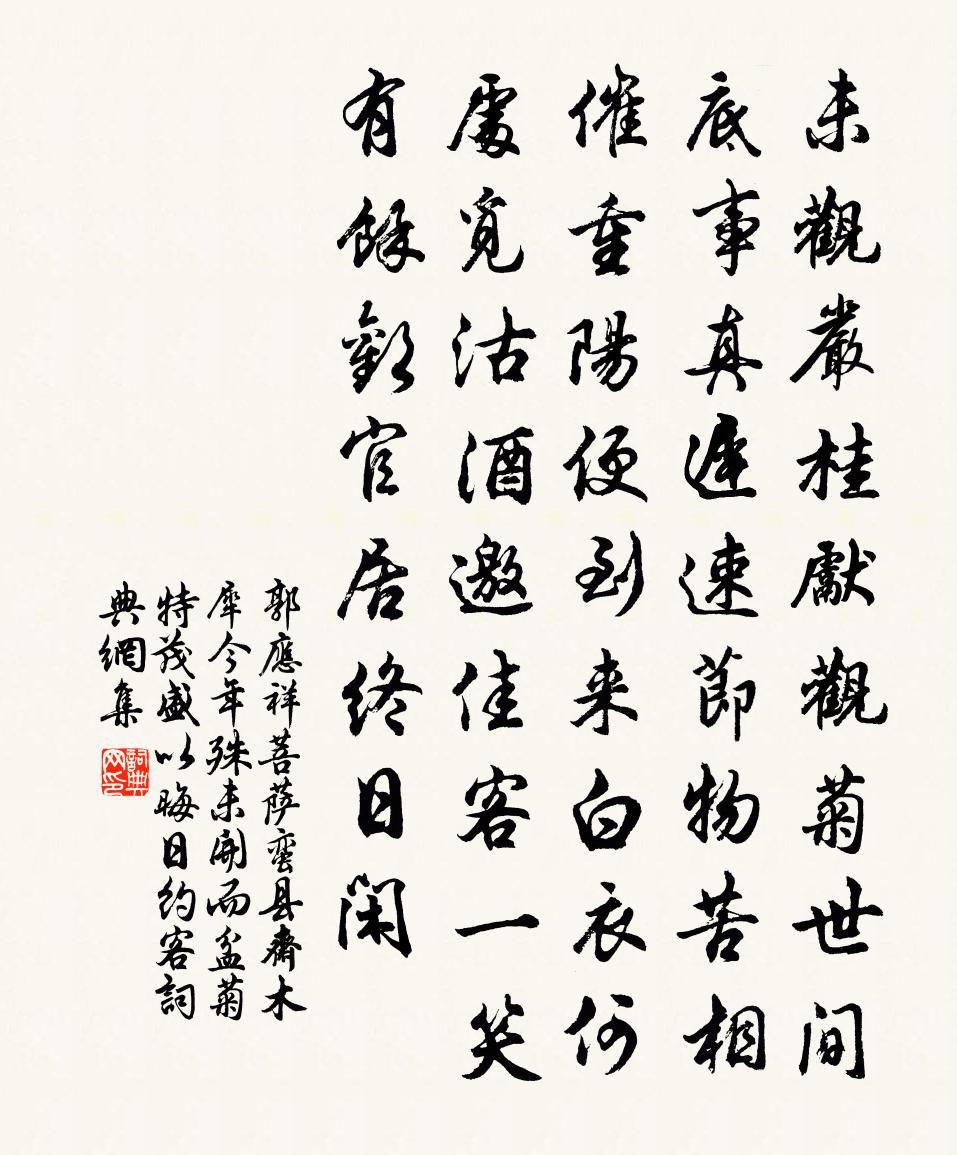 未觀嚴桂獻觀菊世间
底事真遲速節物苦相
催重陽便到来白衣何
處覓沽酒邀佳客一笑
有餘歡官居終日閑
郭應祥菩萨蛮县齋木
犀今年殊未開而盆菊
特茂盛以晦日约客詞
典網集
詞典网印